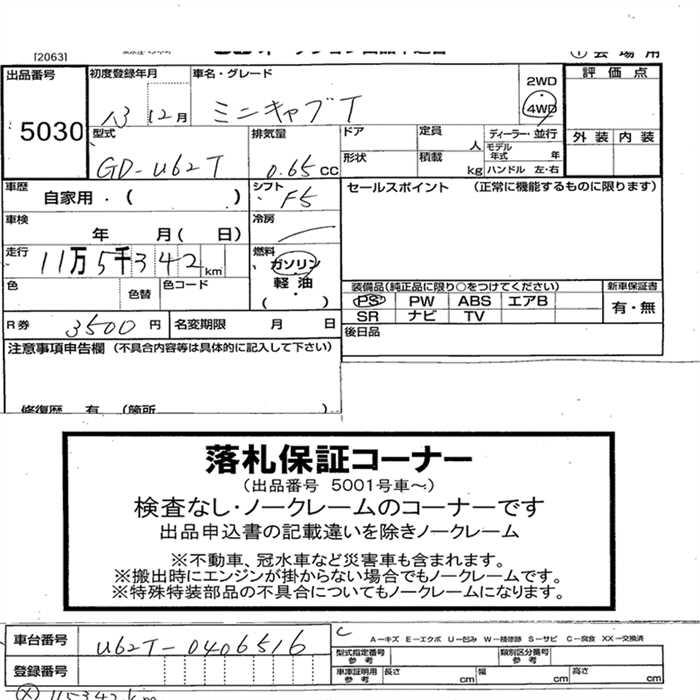 [2063]
出品番号 5030
初度登録年月 13 12月
車名・グレード ミニキャブT
2WD
4WD
評価点
型式 GD-U62T
排気量 0.65cc
ドア
定員 人
ディーラー・並行
モデル年式 年
形状
積載 kg
ハンドル 左・右
外装 内装
車歴 自家用・( )
シフト F5
セールスポイント (正常に機能するものに限ります)
車検 年 月( 日)
冷房
走行 11万5千342km
燃料 ガソリン
軽油
( ・ )
色 色替 色コード
装備品(純正品に限り○をつけてください)
新車保証書
PS PW ABS エアB
有・無
SR ナビ TV
R券 3500円 名変期限 月 日
後日品
注意事項申告欄 (不具合内容等は具体的に記入して下さい)
修復歴 有 (箇所 )
落札保証コーナー
(出品番号 5001号車~)
検査なし・ノークレームのコーナーです
出品申込書の記載違いを除きノークレーム
※不動車、冠水車など災害車も含まれます。
※搬出時にエンジンが掛からない場合でもノークレームです。
※特殊特装部品の不具合についてもノークレームになります。
車台番号 U62T-0406516
A-キズ E-エクボ U-凹み W-補修跡 S-サビ C-腐食 XX-交換済
型式指定番号 参考
類別区分番号 参考
登録番号
車庫証明用 参考 長さ cm 幅 cm 高さ cm
115342km